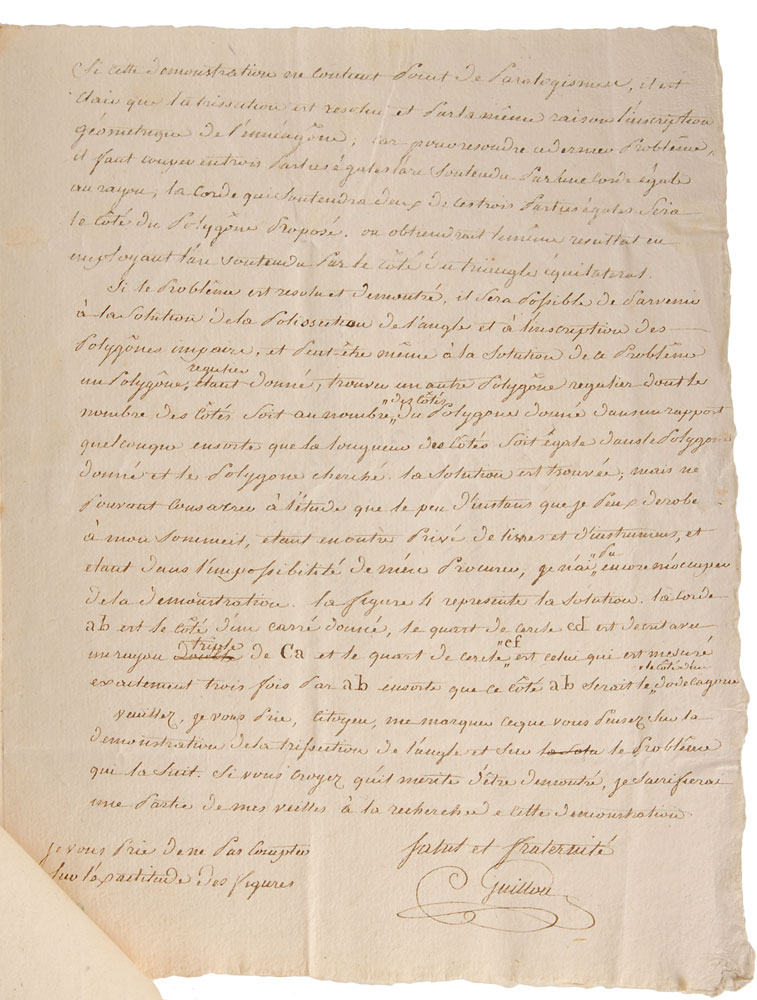 Si cette demonstration ne contient Point de Paralogismes, il est
clair que la trissection est resolue et Par la même raison l'inscription
géometrique de l'ennéagône; car pour resoudre ce dernier Problême,
il faut couper en trois Parties égales l'arc soutendu Par une corde égale
au rayon, la corde qui soutendra deux de ces trois Parties égales sera
le côté du Polygône Proposé. on obtiendrait le même resultat en
employant l'arc soutendu Par le côté du triangle équilateral.
Si le Problême est resolu et demontré, il sera Possible de Parvenir
à la solution de la Polissection de l'angle et à l'inscription des
Polygônes impairs, et Peut-être même à la solution de ce Problême
un Polygône regulier étant donné, trouver un autre Polygône regulier dont le
nombre des côtés soit au nombre des côtés du Polygone donné dans un rapport
quelconque ensorte que la longueur des côtés soit égale dans le Polygone
donné et le Polygone cherché. la solution est trouvée; mais ne
Pouvant consacrer à l'étude que le peu d'instans que je Peux derober
à mon sommeil, etant en outre Privé de livres et d'instrumens, et
etant dans l'impossibilité de m'en Procurer, je n'ai pu encore m'occuper
de la demonstration. la figure 4 represente la solution. la corde
ab est le côté d'un carré donné, le quart de cercle cd est decrit avec
un rayon double triple de Ca et le quart de cercle cf est celui qui est mesuré
exactement trois fois Par ab ensorte que ce côté ab serait le côté d'un dodecagone
veuillez, je vous Prie, Citoyen, me marquer ce que vous Pensez sur la
demonstration de la trissection de l'angle et sur la solu le Problême
qui la suit. Si vous croyez qu'il merite d'être demontré, je sacrifierai
une Partie de mes veilles à la recherche de cette demonstration
je vous Prie de ne Pas compter
sur l'exactitude des figures
salut et fraternité
Guillou